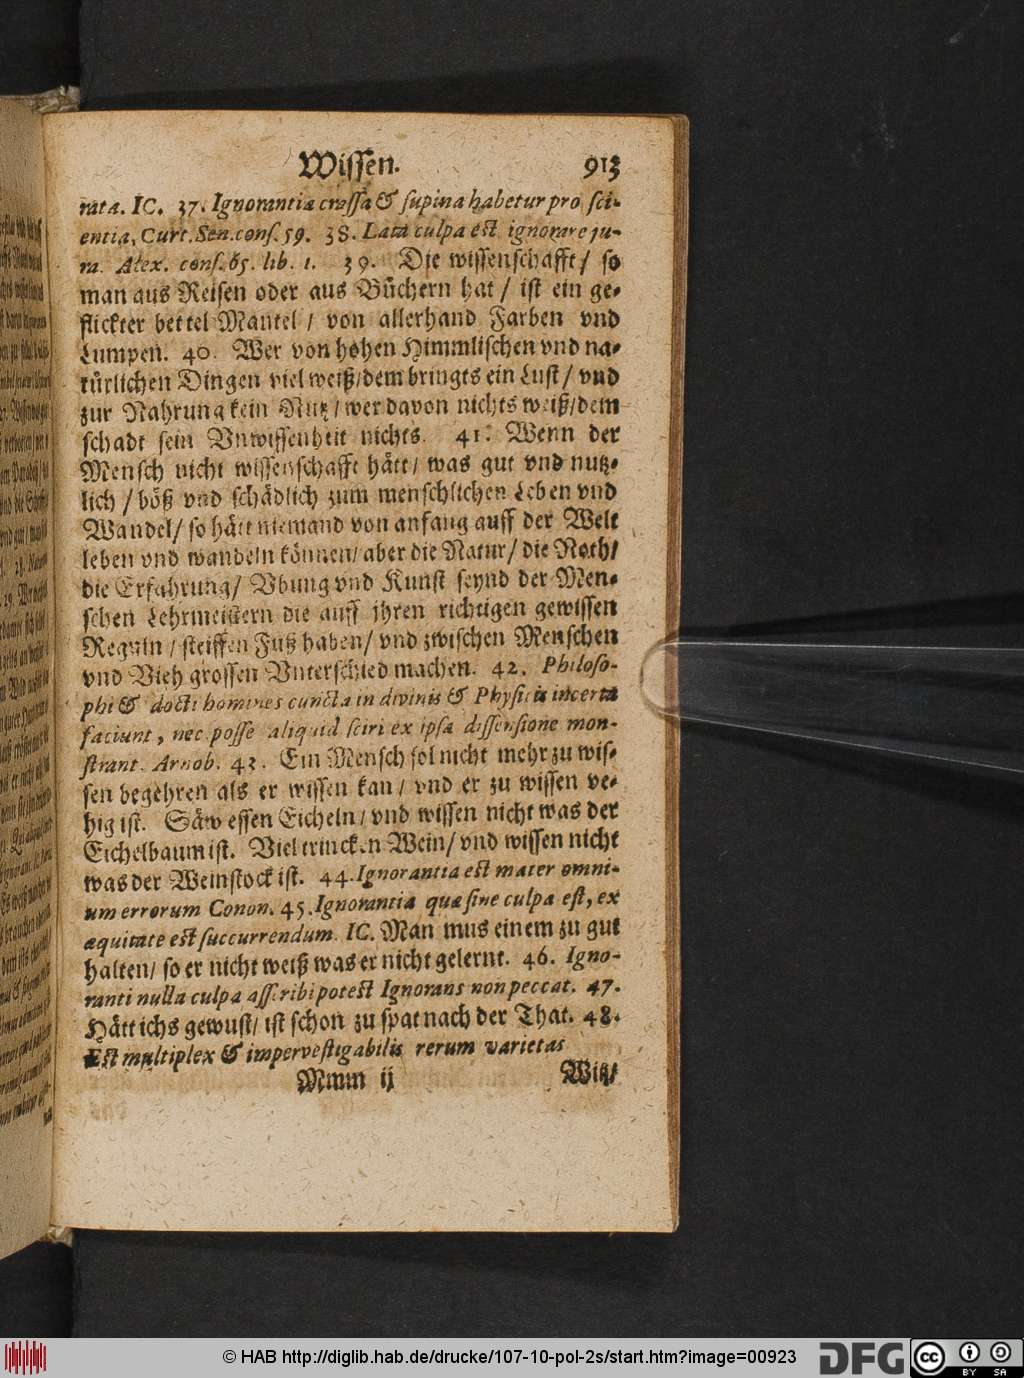 Wissen. 913
rata. IC. 37. Ignorantia crassa & supina habetur pro sci-
entia, Curt. Sen. cons. 59. 38. Lata culpa est ignorare ju-
ra. Alex. cons. 65. lib. 1. 39. Die wissenschafft/ so
man aus Reisen oder aus Büchern hat / ist ein ge-
flickter bettel Mantel / von allerhand Farben vnd
Lumpen. 40. Wer von hohen Himmlischen vnd na-
türlichen Dingen viel weiß/ dem bringts ein Lust / vnd
zur Nahrung kein Nutz / wer davon nichts weiß/ dem
schadt sein Vnwissenheit nichts. 41. Wenn der
Mensch nicht wissenschafft hätt/ was gut vnd nutz-
lich / böß vnd schädlich zum menschlichen Leben vnd
Wandel/ so hätt niemand von anfang auff der Welt
leben vnd wandeln können/ aber die Natur/ die Noth/
die Erfahrung/ Vbung vnd Kunst seynd der Men-
schen Lehrmeistern die auff jhren richtigen gewissen
Reguln / steiffen Fuß haben/ vnd zwischen Menschen
vnd Vieh grossen Vnterschied machen. 42. Philoso-
phi & docti homines cuncta in divinis & Physicis incerta
faciunt, nec posse aliquid sciri ex ipsa dissensione mon-
strant. Arnob. 43. Ein Mensch sol nicht mehr zu wis-
sen begehren als er wissen kan/ vnd er zu wissen ve-
hig ist. Säw essen Eicheln/ vnd wissen nicht was der
Eichelbaum ist. Viel trincken Wein/ vnd wissen nicht
was der Weinstock ist. 44. Ignorantia est mater omni-
um errorum Conon. 45. Ignorantia quæ sine culpa est, ex
æquitate est succurrendum. IC. Man mus einem zu gut
halten/ so er nicht weiß was er nicht gelernt. 46. Igno-
ranti nulla culpa asscribi potest Ignorans non peccat. 47.
Hätt ichs gewust/ ist schon zu spat nach der That. 48.
Est multiplex & impervestigabilis rerum varietas
Mmm ij Witz/
© HAB http://diglib.hab.de/drucke/107-10-pol-2s/start.htm?image=00923
DFG
cc BY SA